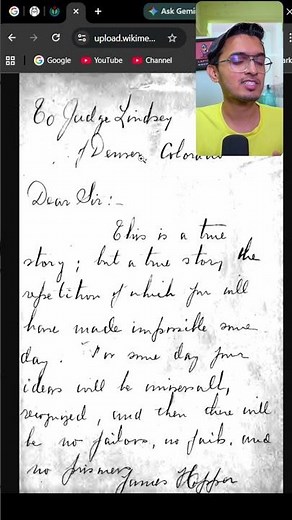 upload.wikime...
Ask Gemi
Google
YouTube
Channel
To Judge Lindsey
of Denver Colorado
Dear Sir:-
This is a true
story; but a true story the
repetition of which you will
have made impossible some
day. For some day your
ideas will be universally
recognized, and then there will
be no jailors, no jails, and
no prisoners
James Hopper